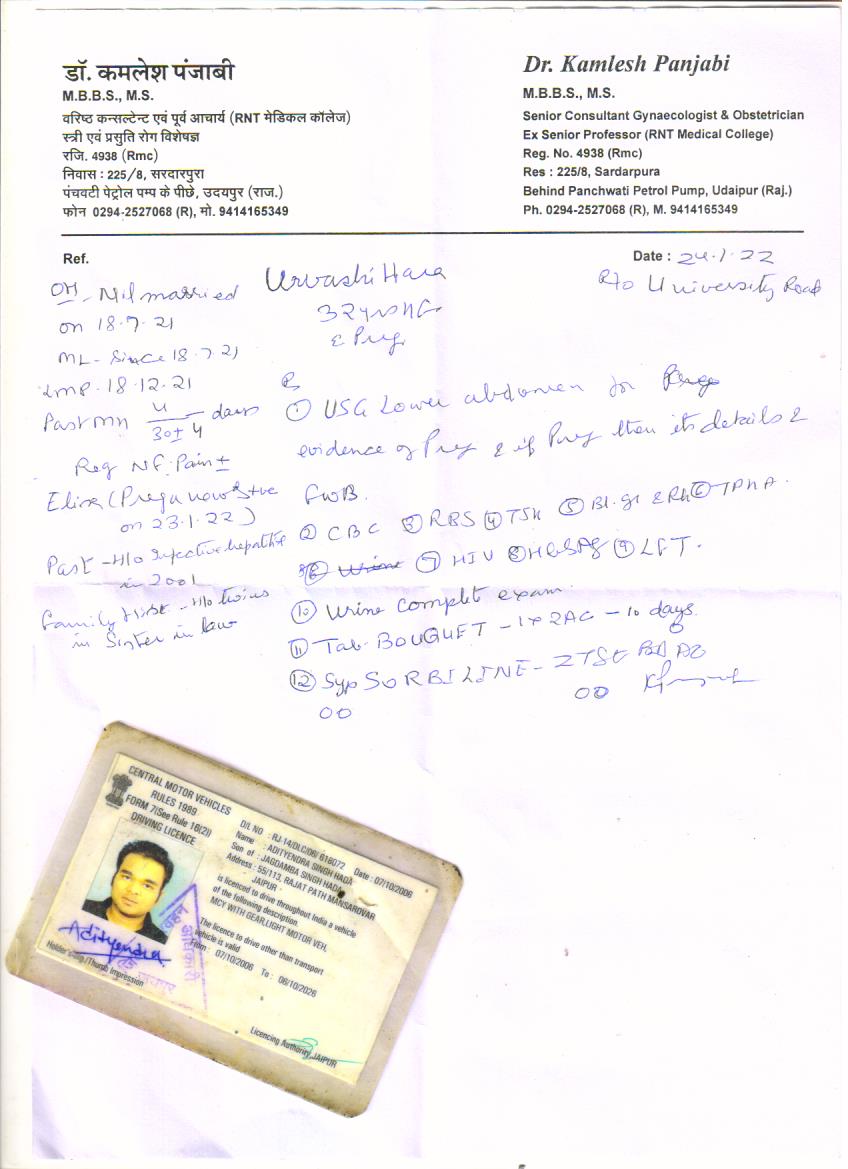 डॉ. कमलेश पंजाबी
M.B.B.S., M.S.
वरिष्ठ कन्सल्टेन्ट एवं पूर्व आचार्य (RNT मेडिकल कॉलेज)
स्त्री एवं प्रसुति रोग विशेषज्ञ
रजि. 4938 (Rmc)
निवास : 225/8, सरदारपुरा
पंचवटी पेट्रोल पम्प के पीछे, उदयपुर (राज.)
फोन 0294-2527068 (R), मो. 9414165349
Dr. Kamlesh Panjabi
M.B.B.S., M.S.
Senior Consultant Gynaecologist & Obstetrician
Ex Senior Professor (RNT Medical College)
Reg. No. 4938 (Rmc)
Res : 225/8, Sardarpura
Behind Panchwati Petrol Pump, Udaipur (Raj.)
Ph. 0294-2527068 (R), M. 9414165349
Ref.
Date : 24.1.22
R/o University Road
Urvashi Hara
32 yrs
Preg.
OH - Nil married
on 18.7.21
ML - Since 18.7.21
LMP. 18.12.21
Past MH 4 days
30±4
Reg NF. Pain ±
Elisa (Preg +ve
on 23.1.22)
Past - H/o Infective hepatitis
in 2001
Family - H/o twins
in Sister in law
① USG Lower abdomen for
evidence of Preg & if Preg then its details &
FWB.
② CBC ③ RBS ④ TSH ⑤ Bl. gr & Rh ⑥ TPHA.
⑦ HIV ⑧ HBSAg ⑨ LFT.
⑩ Urine complet exam.
⑪ Tab. BOUQUET - 1 x 2 AC - 10 days
⑫ Syp SORBILINE - 2 TSF BD
CENTRAL MOTOR VEHICLES
RULES 1989
FORM 7(See Rule 16(2))
DRIVING LICENCE
D/L NO : RJ-14/DLC/06/ 616072 Date : 07/10/2006
Name : ADITYENDRA SINGH HADA
Son of : JAGDAMBA SINGH HADA
Address : 55/113, RAJAT PATH MANSAROVAR
JAIPUR
is licenced to drive throughout India a vehicle
of the following description.
MCY WITH GEAR,LIGHT MOTOR VEH,
The licence to drive other than transport
vehicle is valid
From : 07/10/2006 To : 06/10/2026
Adityendra
Holder's Sig./Thumb Impression
वाहन
अधिकारी
जयपुर
Licencing Authority,JAIPUR